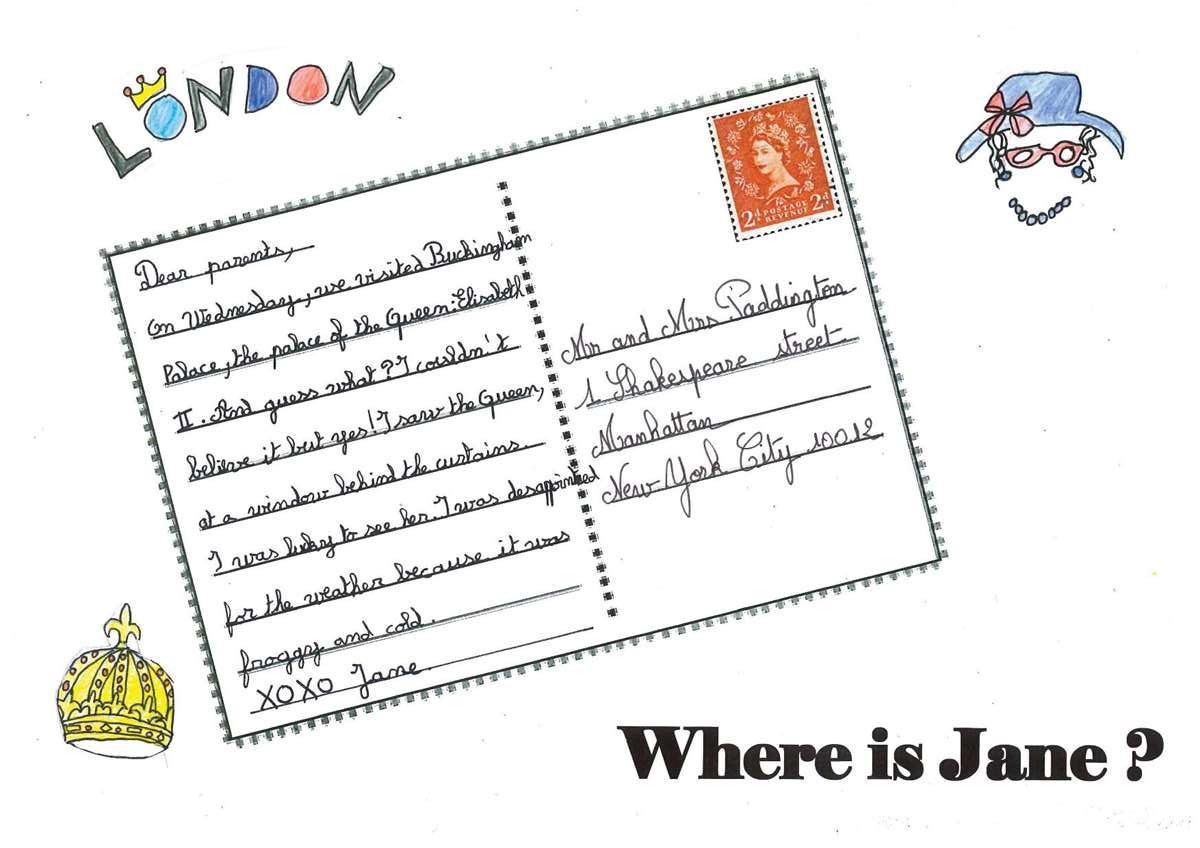 LONDON
Dear parents,
On Wednesday, we visited Buckingham
Palace, the palace of the Queen: Elisabeth
II. And guess what? I couldn't
believe it but yes! I saw the Queen,
at a window behind the curtains.
I was lucky to see her. I was desappointed
for the weather because it was
froggy and cold.
XOXO Jane
2d POSTAGE REVENUE 2d
Mr and Mrs Paddington
1 Shakespeare street
Manhattan
New York City 10012
Where is Jane ?